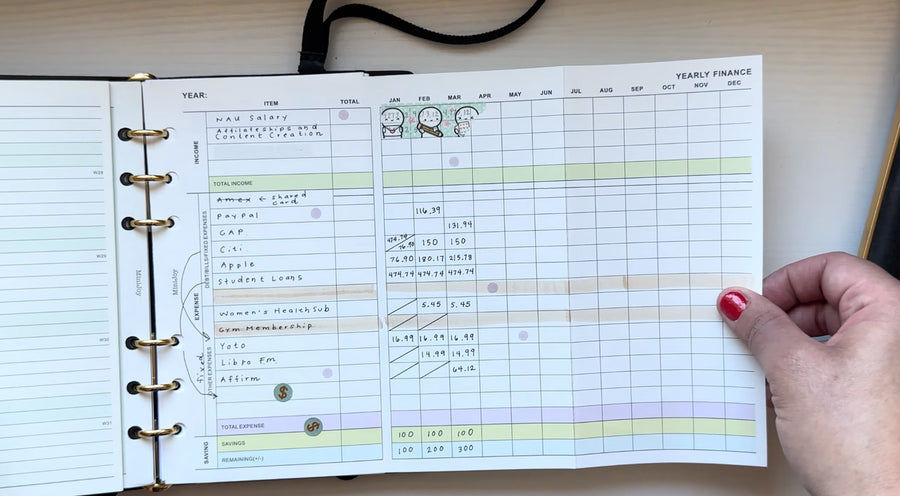 YEARLY FINANCE
YEAR:
ITEM TOTAL JAN FEB MAR APR MAY JUN JUL AUG SEP OCT NOV DEC
INCOME
NAU Salary
Affiliateships and
Content Creation
TOTAL INCOME
DEBT/BILLS/FIXED EXPENSES
Amex ← shared
card
PayPal 116.39
GAP 131.94
Citi 474.74 76.90 150 150
Apple 76.90 180.17 215.78
Student Loans 474.74 474.74 474.74
EXPENSE
Women's Health Sub 5.45 5.45
Gym Membership
Yoto 16.99 16.99 16.99
Libro Fm 14.99 14.99
Affirm 64.12
fixed
OTHER EXPENSES
$
$
TOTAL EXPENSE
SAVING
SAVINGS 100 100 100
REMAINING(+/-) 100 200 300
W28
W29
W30
W31
Monday
Monday